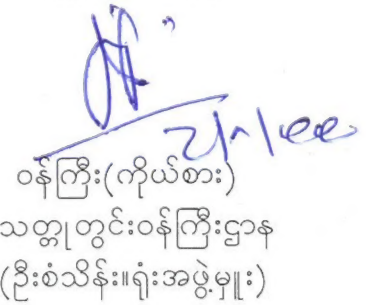 ဝန်ကြီး(ကိုယ်စား)
သတ္တုတွင်းဝန်ကြီးဌာန
(ဦးစံသိန်း။ရုံးအဖွဲ့မှူး)